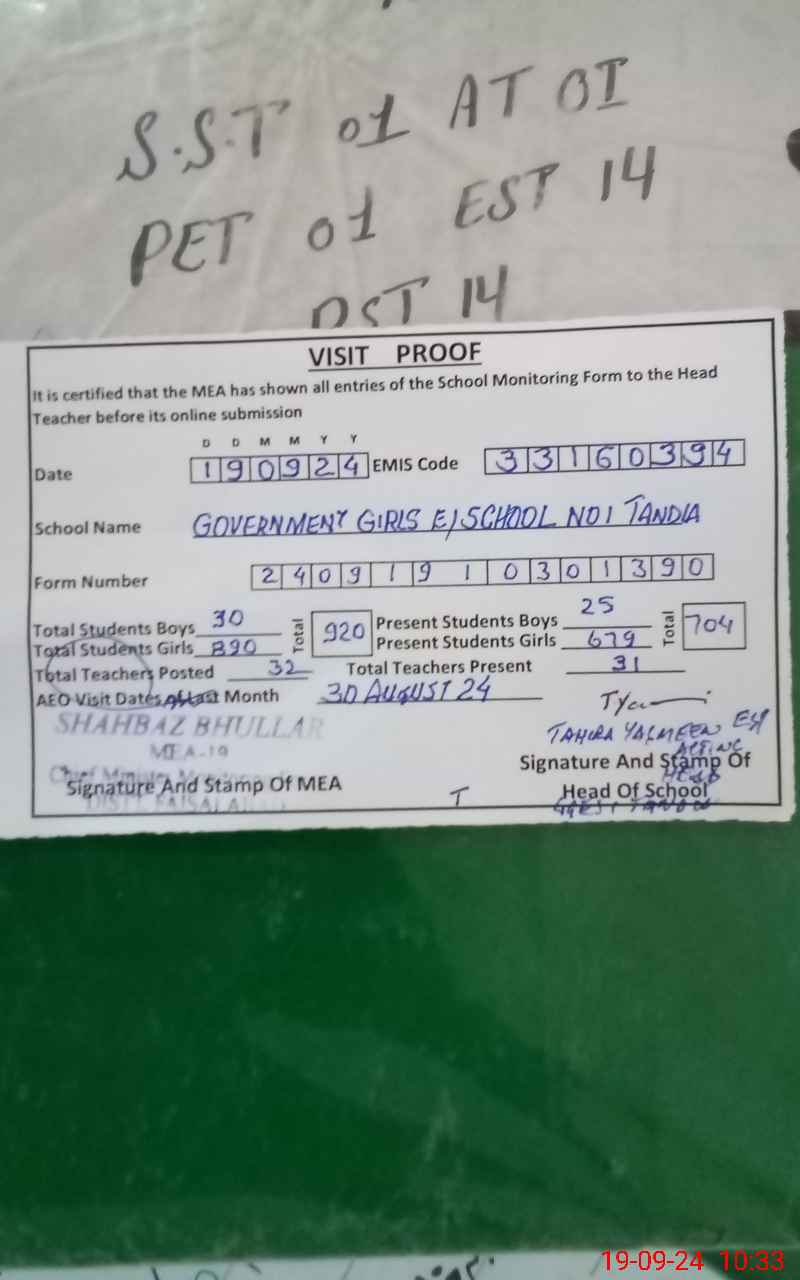 S.S.T 01 AT 01
PET 01 EST 14
PST 14
VISIT PROOF
It is certified that the MEA has shown all entries of the School Monitoring Form to the Head
Teacher before its online submission
D D M M Y Y
Date 190924 EMIS Code 33160394
School Name GOVERNMENT GIRLS E/SCHOOL NO1 TANDLA
Form Number 24091910301390
Total Students Boys 30 Total 920 Present Students Boys 25 Total 704
Total Students Girls 890 Present Students Girls 679
Total Teachers Posted 32 Total Teachers Present 31
AEO Visit Dates of Last Month 30 AUGUST 24
SHAHBAZ BHULLAR
MEA-19
TAHIRA YASMEEN EST
ACTING
HEAD
Signature And Stamp Of MEA
Signature And Stamp Of
Head Of School
19-09-24 10:33